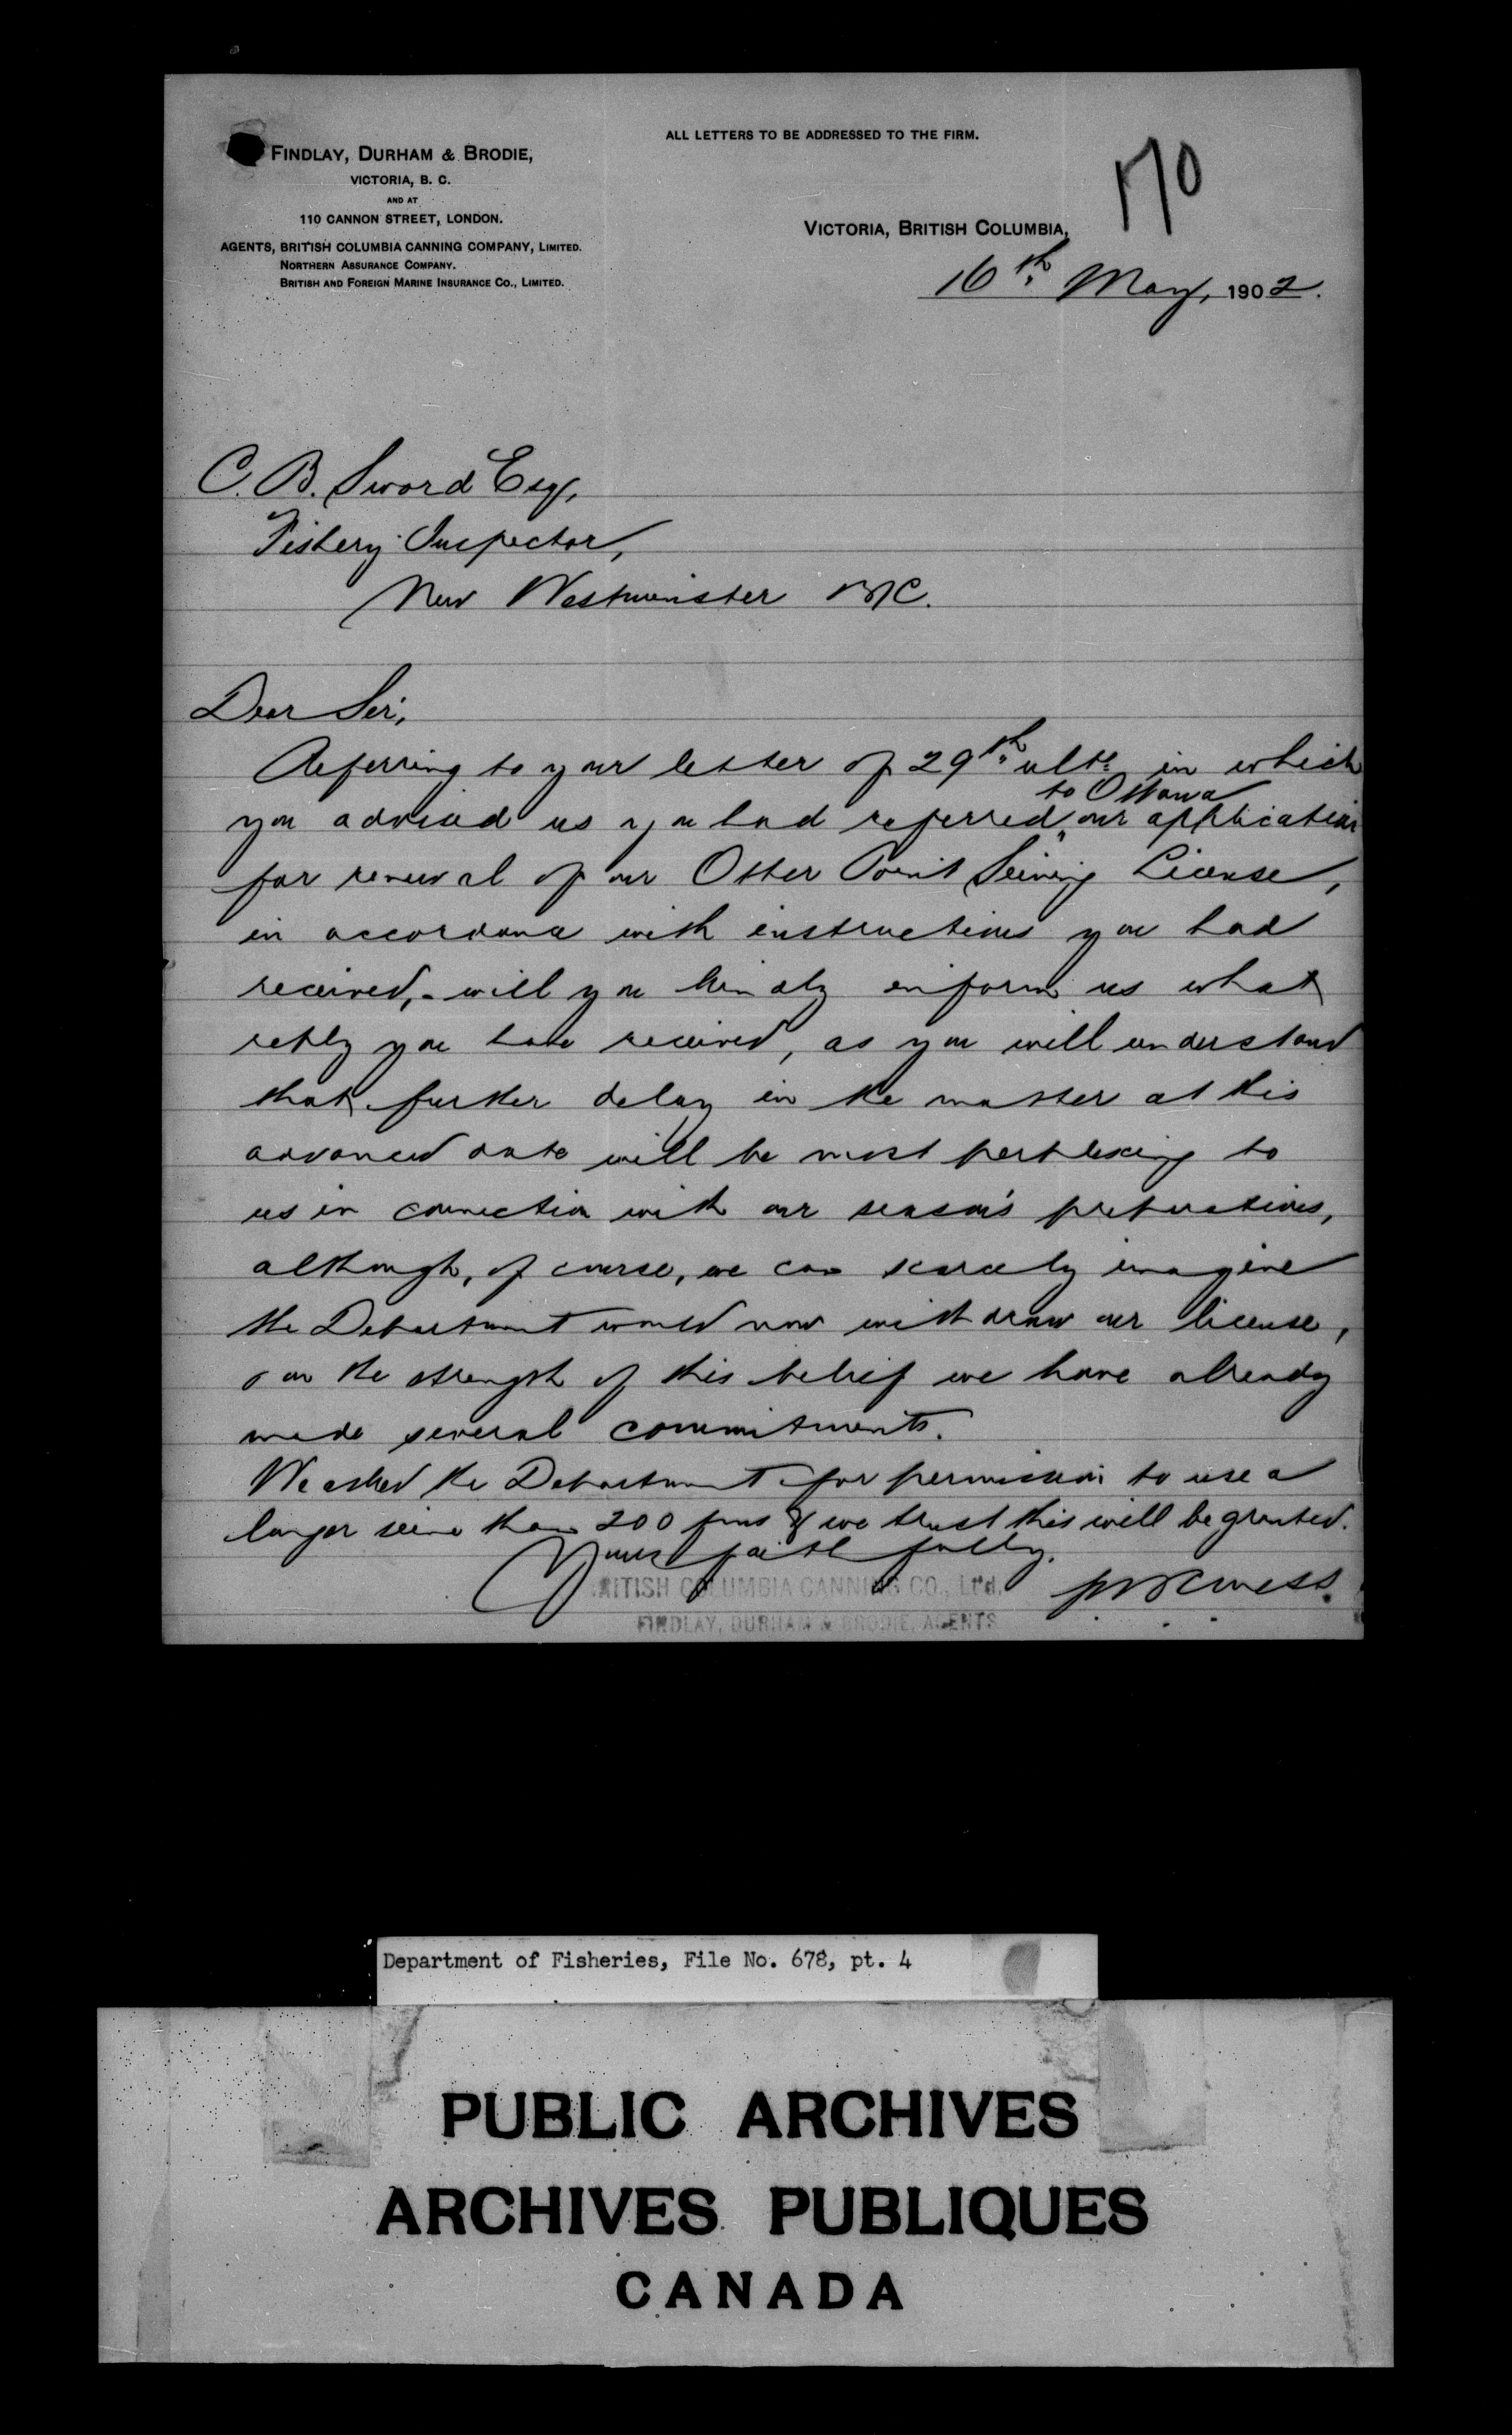 ALL LETTERS TO BE ADDRESSED TO THE FIRM.
FINDLAY, DURHAM & BRODIE,
VICTORIA, B. C.
AND AT
110 CANNON STREET, LONDON.
AGENTS, BRITISH COLUMBIA CANNING COMPANY, LIMITED.
NORTHERN ASSURANCE COMPANY.
BRITISH AND FOREIGN MARINE INSURANCE CO., LIMITED.
170
VICTORIA, BRITISH COLUMBIA,
16th May, 1902.
C. B. Sword Esq,
Fishery Inspector,
New Westminster BC.
Dear Sir,
Referring to your letter of 29th ulto. in which
to Ottawa
you advised us you had referred our application
for renewal of our Otter Point Seining License,
in accordance with instructions you had
received, - will you kindly inform us what
reply you have received, as you will understand
that further delay in the matter at this
advanced date will be most perplexing to
us in connection with our season's preparations,
although, of course, we can scarcely imagine
the Department would now withdraw our license,
& on the strength of this belief we have already
made several commitments.
We asked the Department for permission to use a
larger seine than 200 fms & we trust this will be granted.
Yours faithfully,
BRITISH COLUMBIA CANNING CO., Ltd.
FINDLAY, DURHAM & BRODIE, AGENTS
Department of Fisheries, File No. 678, pt. 4
PUBLIC ARCHIVES
ARCHIVES PUBLIQUES
CANADA